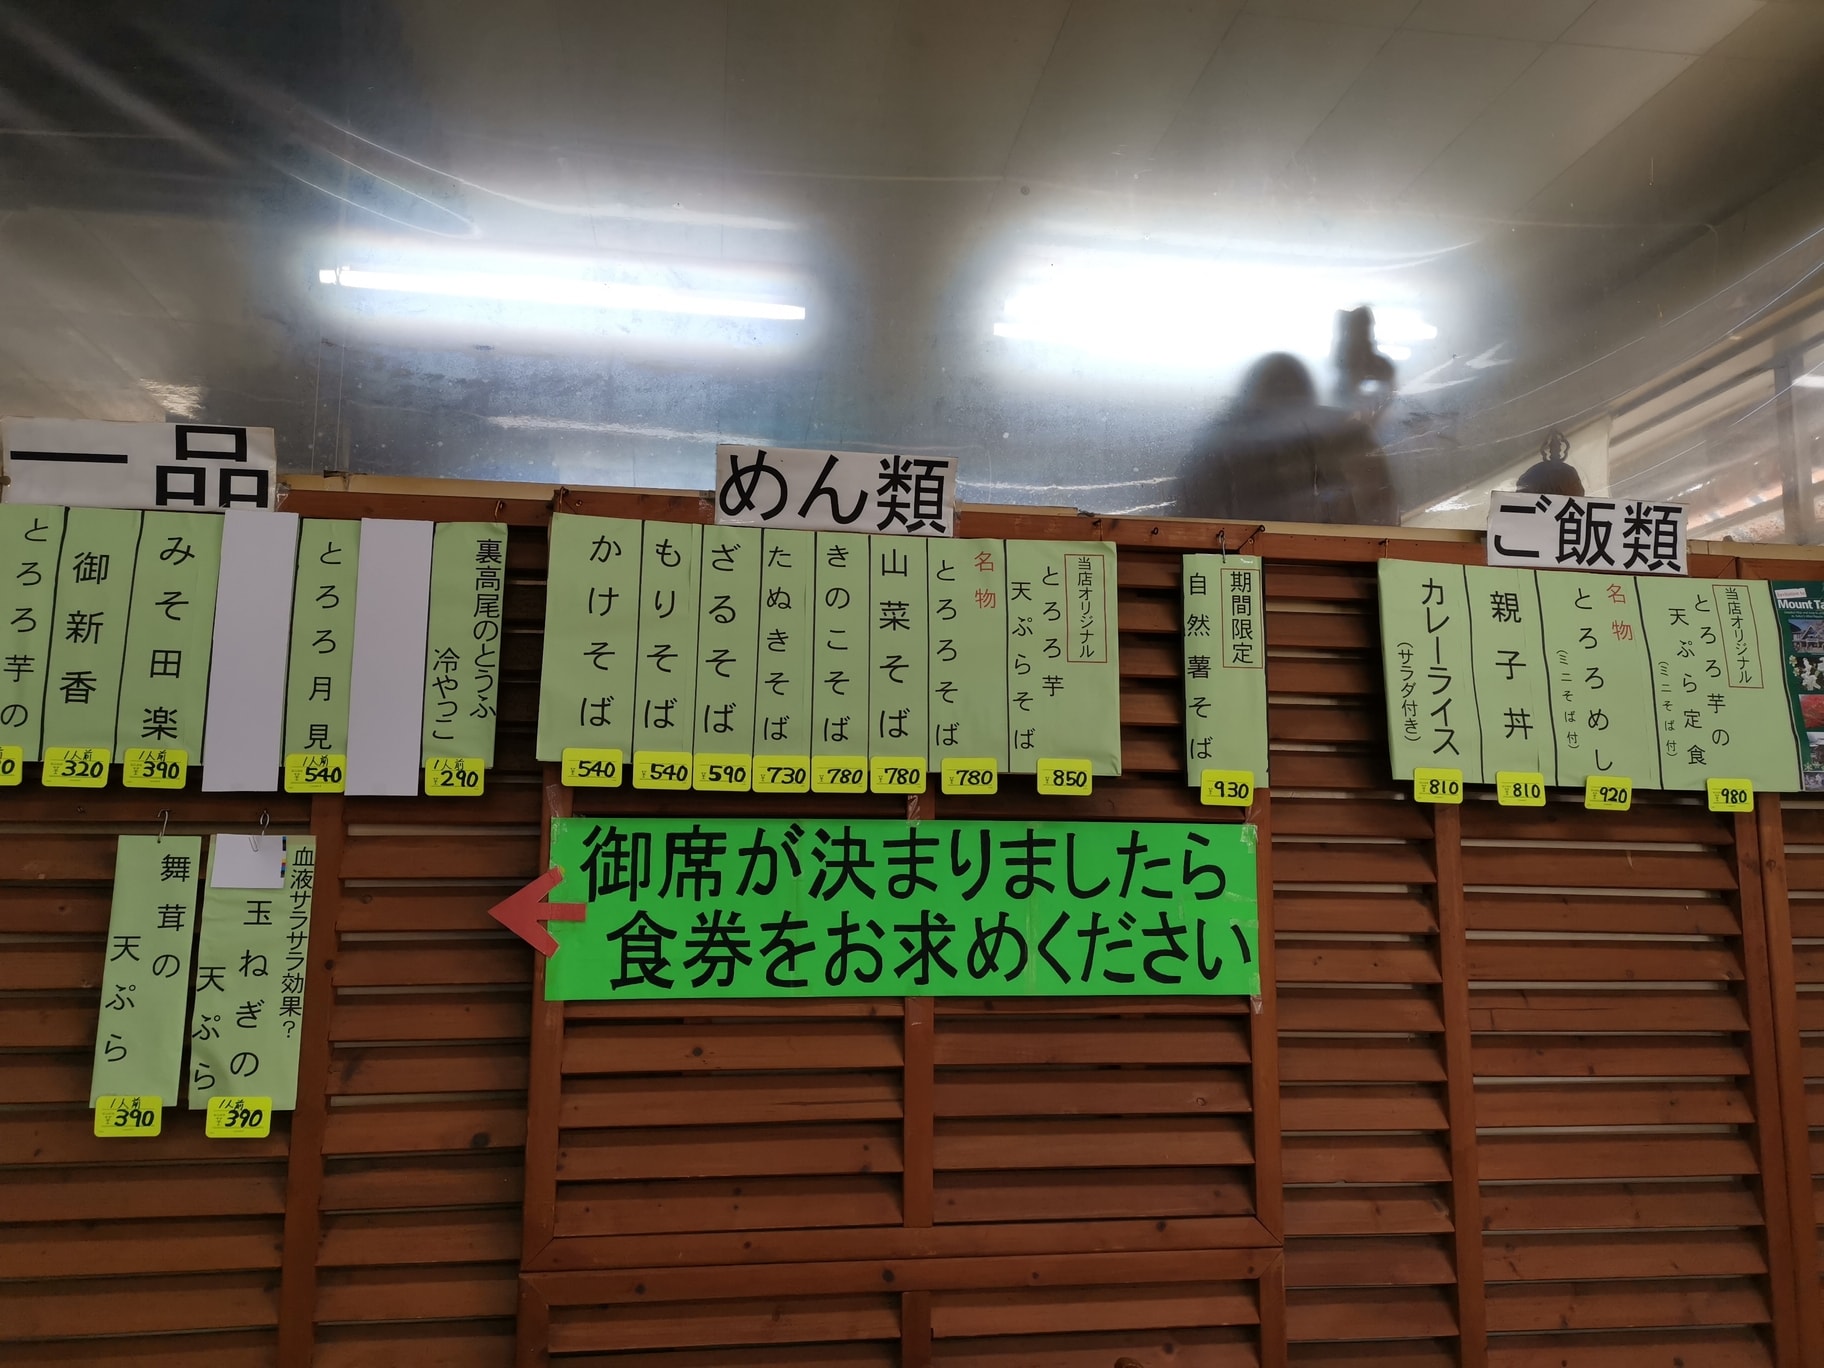 一品
とろろ芋の
御新香
1人前
320
みそ田楽
1人前
390
とろろ月見
1人前
540
裏高尾のとうふ
冷やっこ
1人前
290
舞茸の
天ぷら
1人前
390
血液サラサラ効果？
玉ねぎの
天ぷら
1人前
390
めん類
かけそば
540
もりそば
540
ざるそば
590
たぬきそば
730
きのこそば
780
山菜そば
780
名物
とろろそば
780
当店オリジナル
とろろ芋
天ぷらそば
850
期間限定
自然薯そば
930
御席が決まりましたら
食券をお求めください
ご飯類
カレーライス
(サラダ付き)
810
親子丼
810
名物
とろろめし
(ミニそば付)
920
当店オリジナル
とろろ芋の
天ぷら定食
(ミニそば付)
980